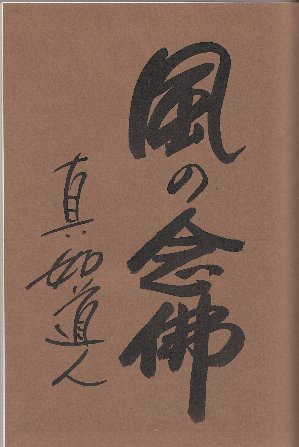 風の念佛
真如道人